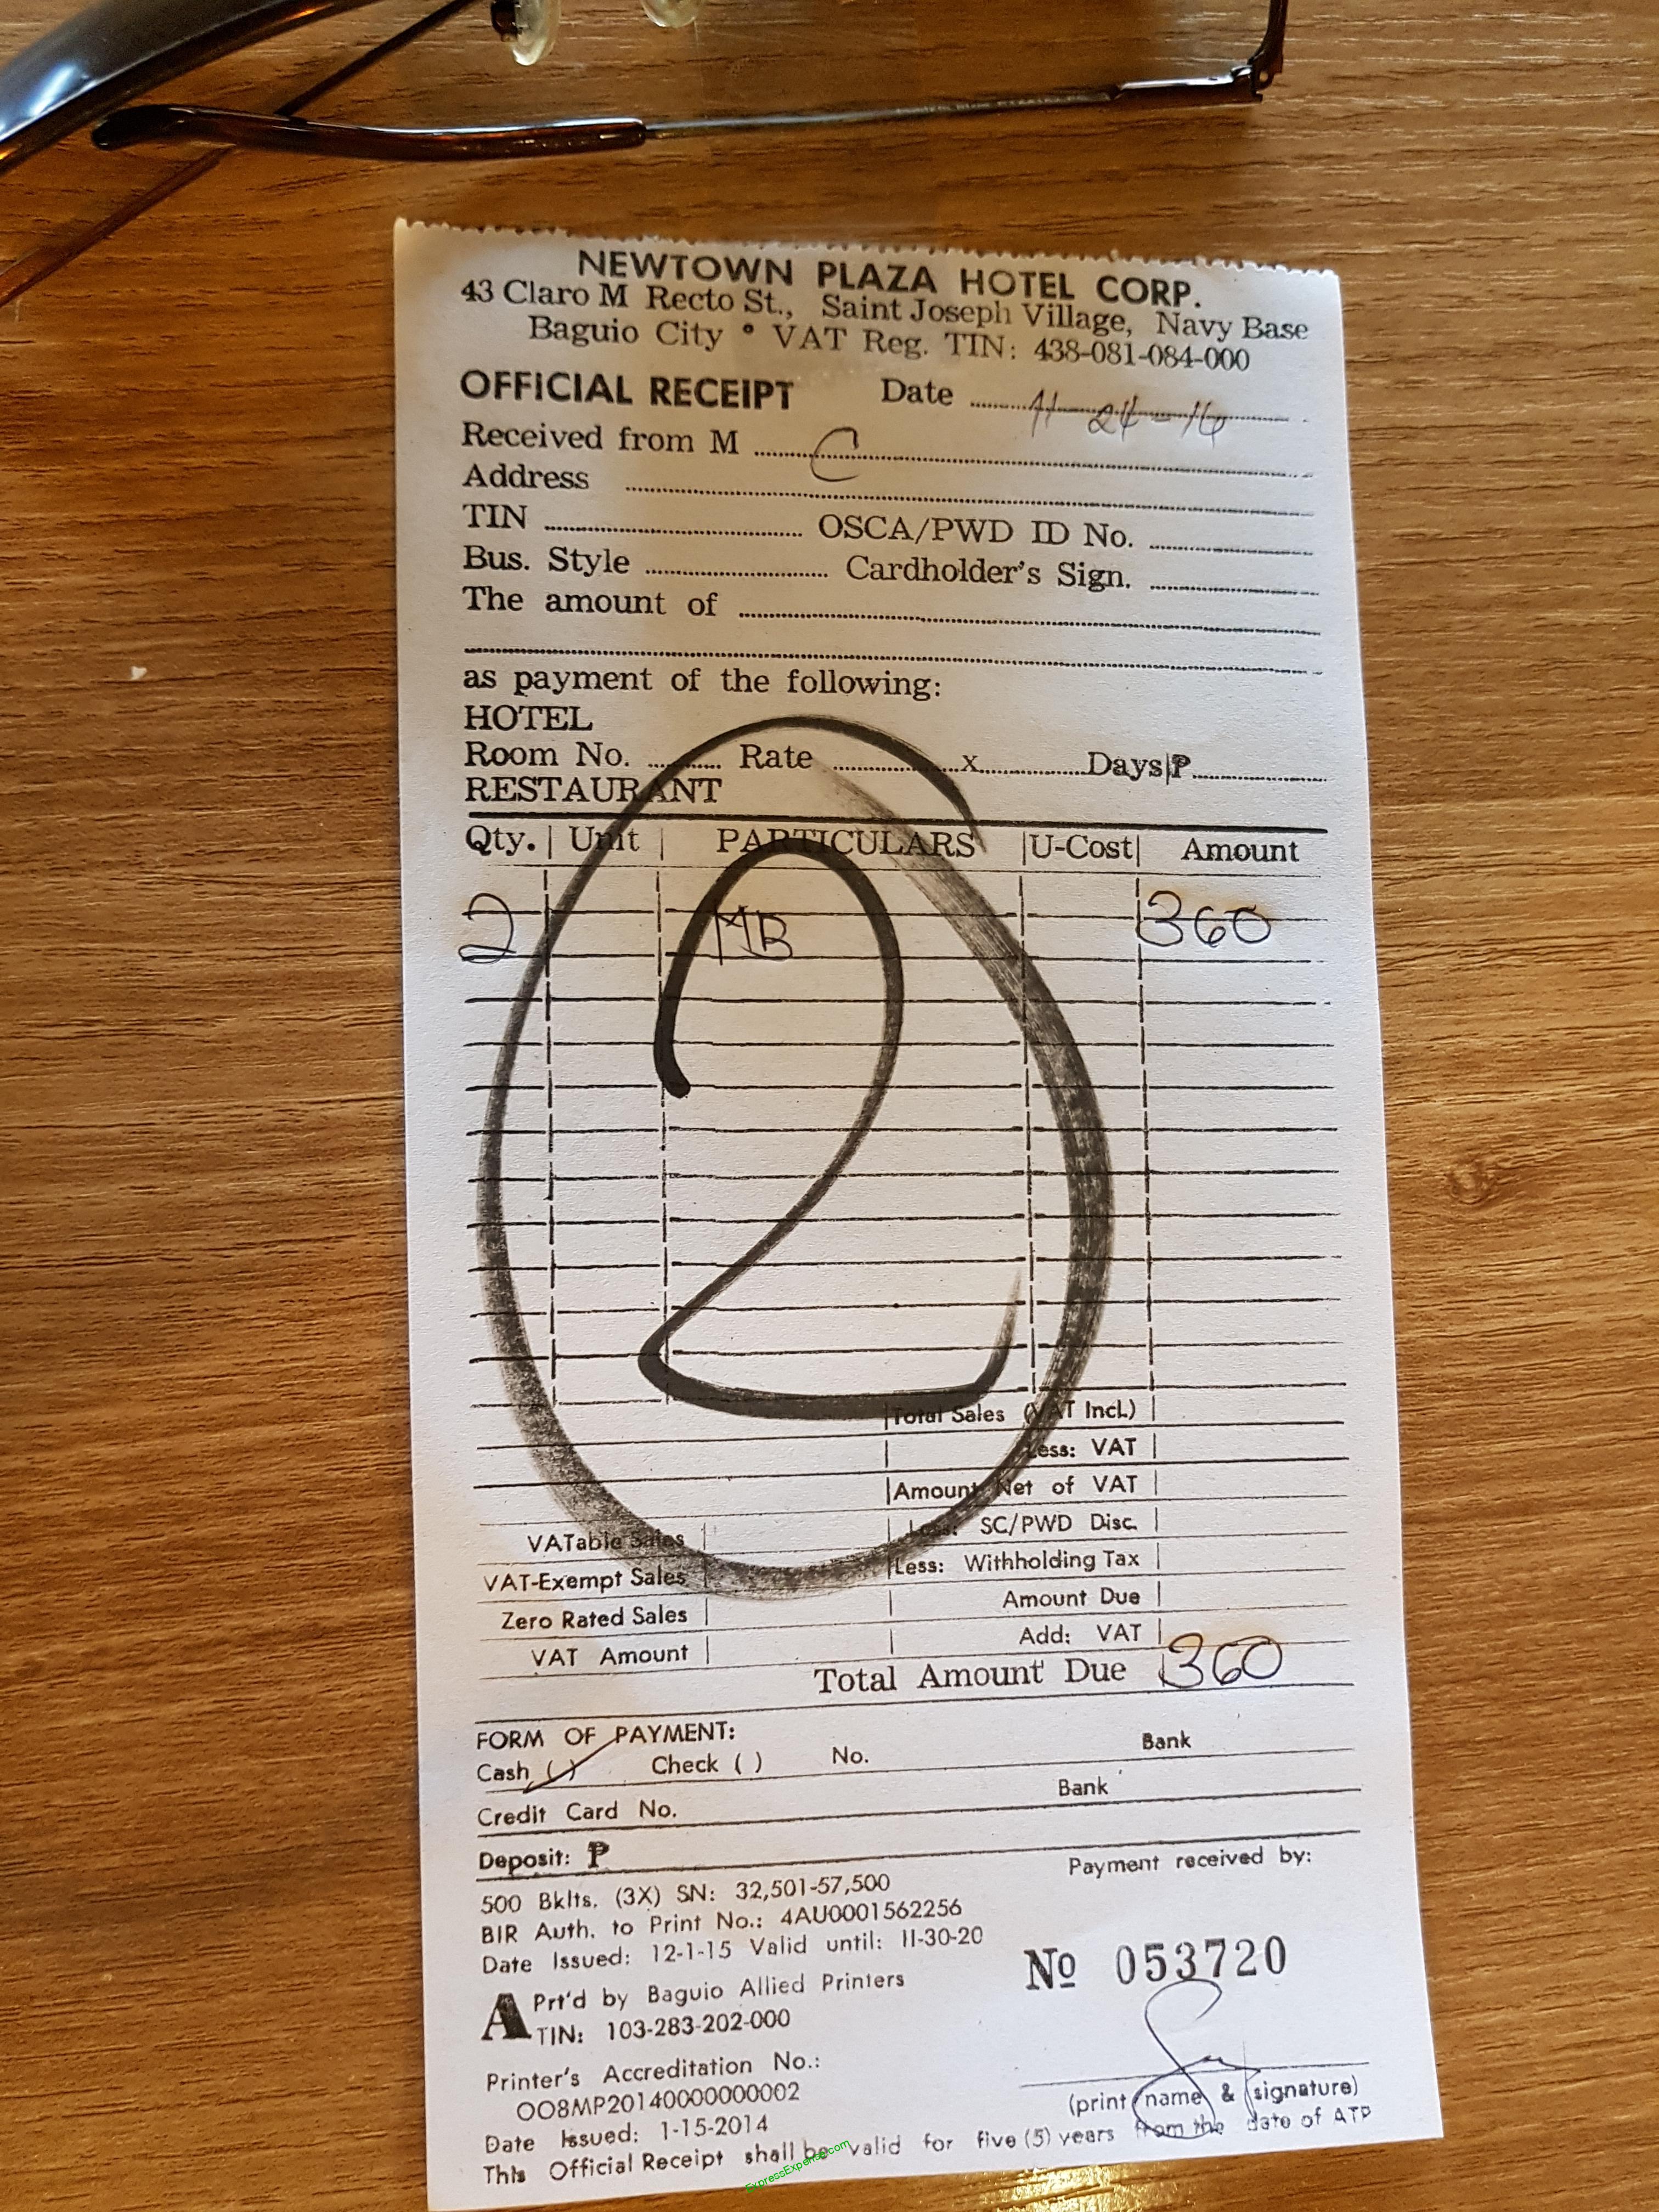 NEWTOWN PLAZA HOTEL CORP.
43 Claro M Recto St., Saint Joseph Village, Navy Base
Baguio City • VAT Reg. TIN: 438-081-084-000
OFFICIAL RECEIPT Date 11-24-16
Received from M C
Address
TIN OSCA/PWD ID No.
Bus. Style Cardholder's Sign.
The amount of
as payment of the following:
HOTEL
Room No. Rate x Days ₱
RESTAURANT
Qty. Unit PARTICULARS U-Cost Amount
2 MB 360
2
Total Sales (VAT Incl.)
Less: VAT
Amount Net of VAT
VATable Sales Less: SC/PWD Disc.
VAT-Exempt Sales Less: Withholding Tax
Zero Rated Sales Amount Due
VAT Amount Add: VAT
Total Amount Due 360
FORM OF PAYMENT:
Cash ( ) Check ( ) No. Bank
Credit Card No. Bank
Deposit: ₱
Payment received by:
500 Bklts. (3X) SN: 32,501-57,500
BIR Auth. to Print No.: 4AU0001562256
Date Issued: 12-1-15 Valid until: 11-30-20
№ 053720
A Prt'd by Baguio Allied Printers
TIN: 103-283-202-000
Printer's Accreditation No.:
OO8MP20140000000002
(print name & signature)
Date Issued: 1-15-2014
This Official Receipt shall be valid for five (5) years from the date of ATP
ExpressExpense.com